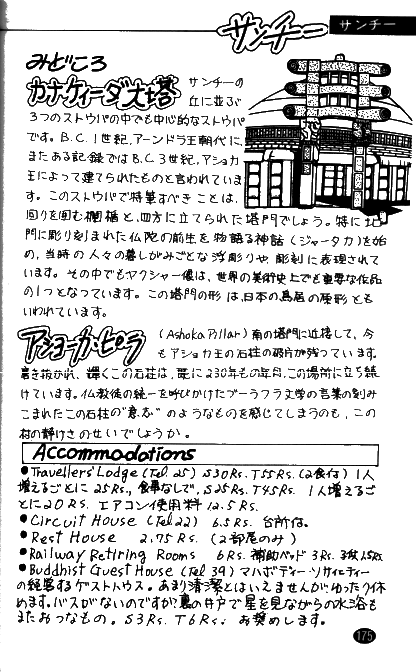 サンチー
サンチー
みどころ
カナケィーダ大塔
サンチーの
丘に並ぶ
3つのストウパの中でも中心的なストウパ
です。B.C.1世紀、アーンドラ王朝代に、
またある記録ではB.C.3世紀、アショカ
王によって建てられたものと言われていま
す。このストウパで特筆すべきことは、
回りを囲む欄楯と、四方に立てられた塔門でしょう。特に塔
門に彫り刻まれた仏陀の前生を物語る神話(ジャータカ)を始
め、当時の人々の暮しがみごとな浮彫りや、彫刻に表現されて
います。その中でもヤクシャー像は、世界の美術史上でも重要な作品
の1つとなっています。この塔門の形は、日本の鳥居の原形とも
いわれています。
アショーカ・ピラ
(Ashoka Pillar) 南の塔門に近接して、今
もアショカ王の石柱の破片が残っています。
磨き抜かれ、輝くこの石柱は、既に230年もの年月、この場所に立ち続
けています。仏教徒の統一を呼びかけたブーラフラ文学の言葉の刻み
こまれたこの石柱の"意志"のようなものを感じてしまうのも、この
村の静けさのせいでしょうか。
Accommodations
●Travellers' Lodge (Tel 25) S30Rs. T55Rs. (2食付) 1人
増えるごとに25Rs., 食事なしで、S25Rs. T45Rs. 1人増えるご
とに20Rs. エアコン使用料12.5Rs.
●Circuit House (Tel 22) 6.5Rs. 台所付。
●Rest House 2.75Rs. (2部屋のみ)
●Railway Retiring Rooms 6Rs. 補助ベッド3Rs. 3枚1.5Rs
●Buddhist Guest House (Tel 39) マハボディー・ソサイェティー
の経営するゲストハウス。あまり清潔とはいえませんが、ゆったり休
めます。バスがないのですが裏の井戸で星を見ながらの水浴も
またおつなもの。S3Rs. T6Rs. お奨めします。
175